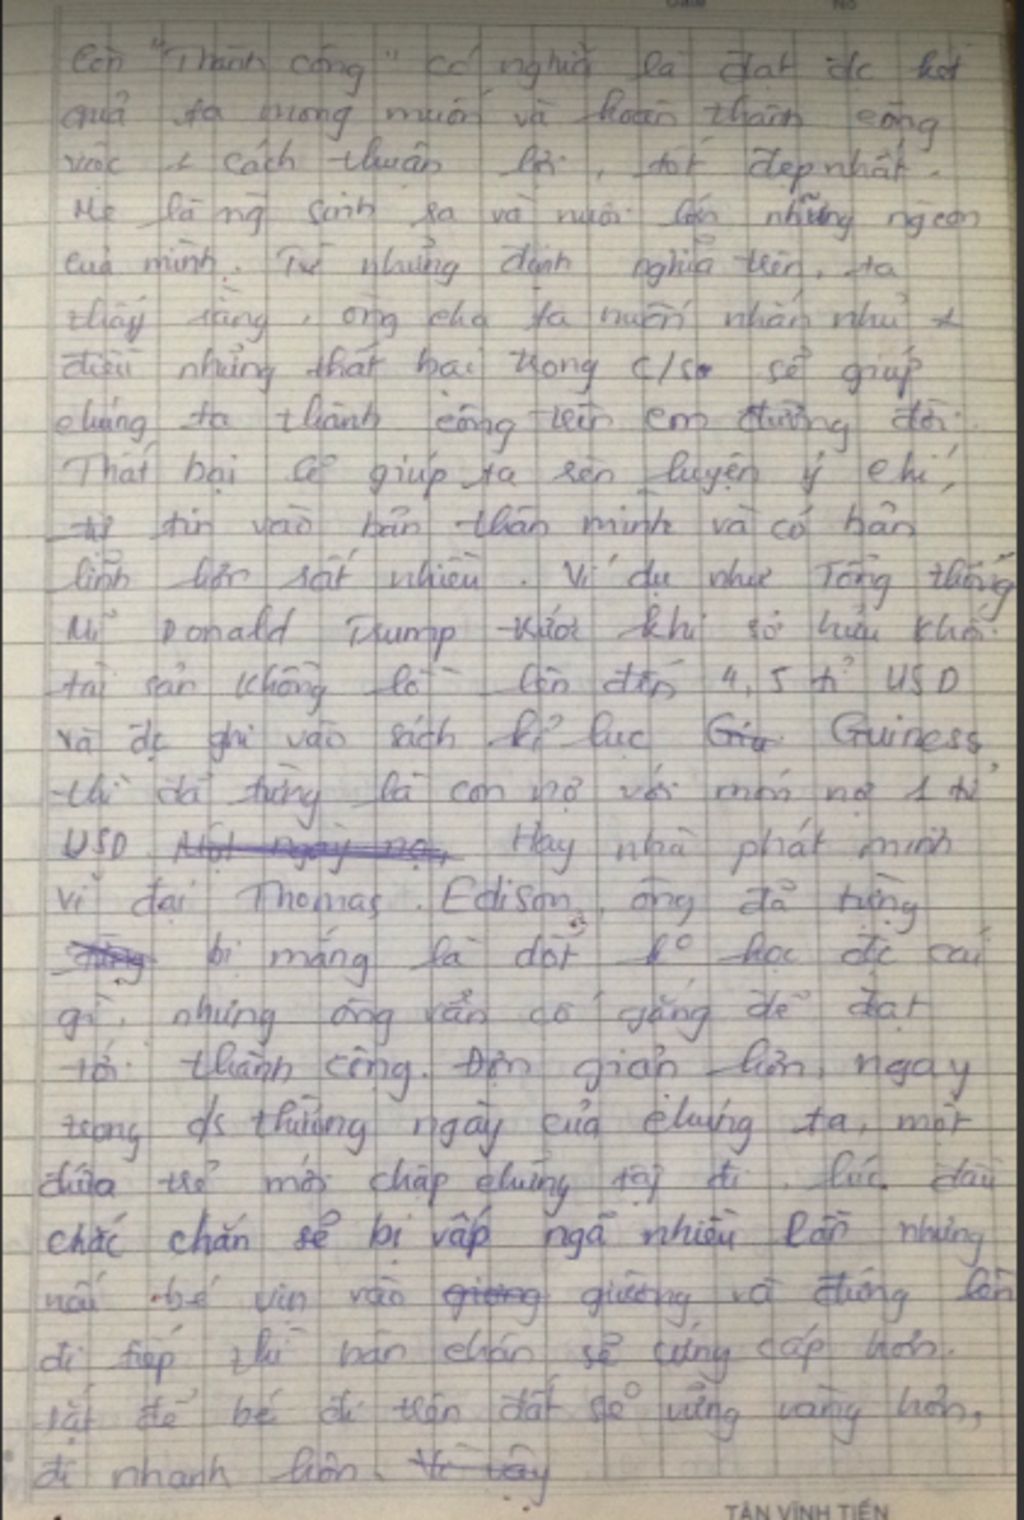 Còn "Thành công" có nghĩa là đạt đc kết
quả ta mong muốn và hoàn thành công
việc 1 cách thuận lợi, tốt đẹp nhất.
Mẹ là ng sinh ra và nuôi lớn những ng con
của mình. Từ những định nghĩa trên, ta
thấy rằng, ông cha ta muốn nhắn nhủ 1
điều những thất bại trong c/s sẽ giúp
chúng ta thành công trên con đường đời.
Thất bại sẽ giúp ta rèn luyện ý chí,
tự tin vào bản thân mình và có bản
lĩnh hơn rất nhiều. Ví dụ như Tổng thống
Mĩ Donald Trump trước khi sở hữu khối
tài sản khổng lồ lên đến 4,5 tỉ USD
và đc ghi vào sách kỉ lục Guiness
thì đã từng là con nợ với món nợ 1 tỉ
USD Một ngày nọ, Hay nhà phát minh
vĩ đại Thomas. Edison, ông đã từng
từng bị mắng là dốt ko học đc cái
gì, nhưng ông vẫn cố gắng để đạt
tới thành công. Đơn giản hơn, ngay
trong đ/s thường ngày của chúng ta, một
đứa trẻ mới chập chững tập đi, lúc đầu
chắc chắn sẽ bị vấp ngã nhiều lần nhưng
nếu bé vịn vào giường và đứng lên
đi tiếp thì bàn chân sẽ cứng cáp hơn.
để bé đi trên đất sẽ vững vàng hơn,
đi nhanh hơn. Vì vậy
TÂN VĨNH TIẾN